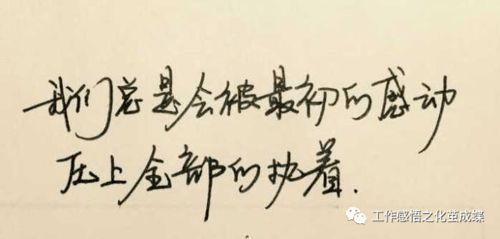 我们总是会被最初的感动
压上全部的执着.
工作感悟之化茧成蝶